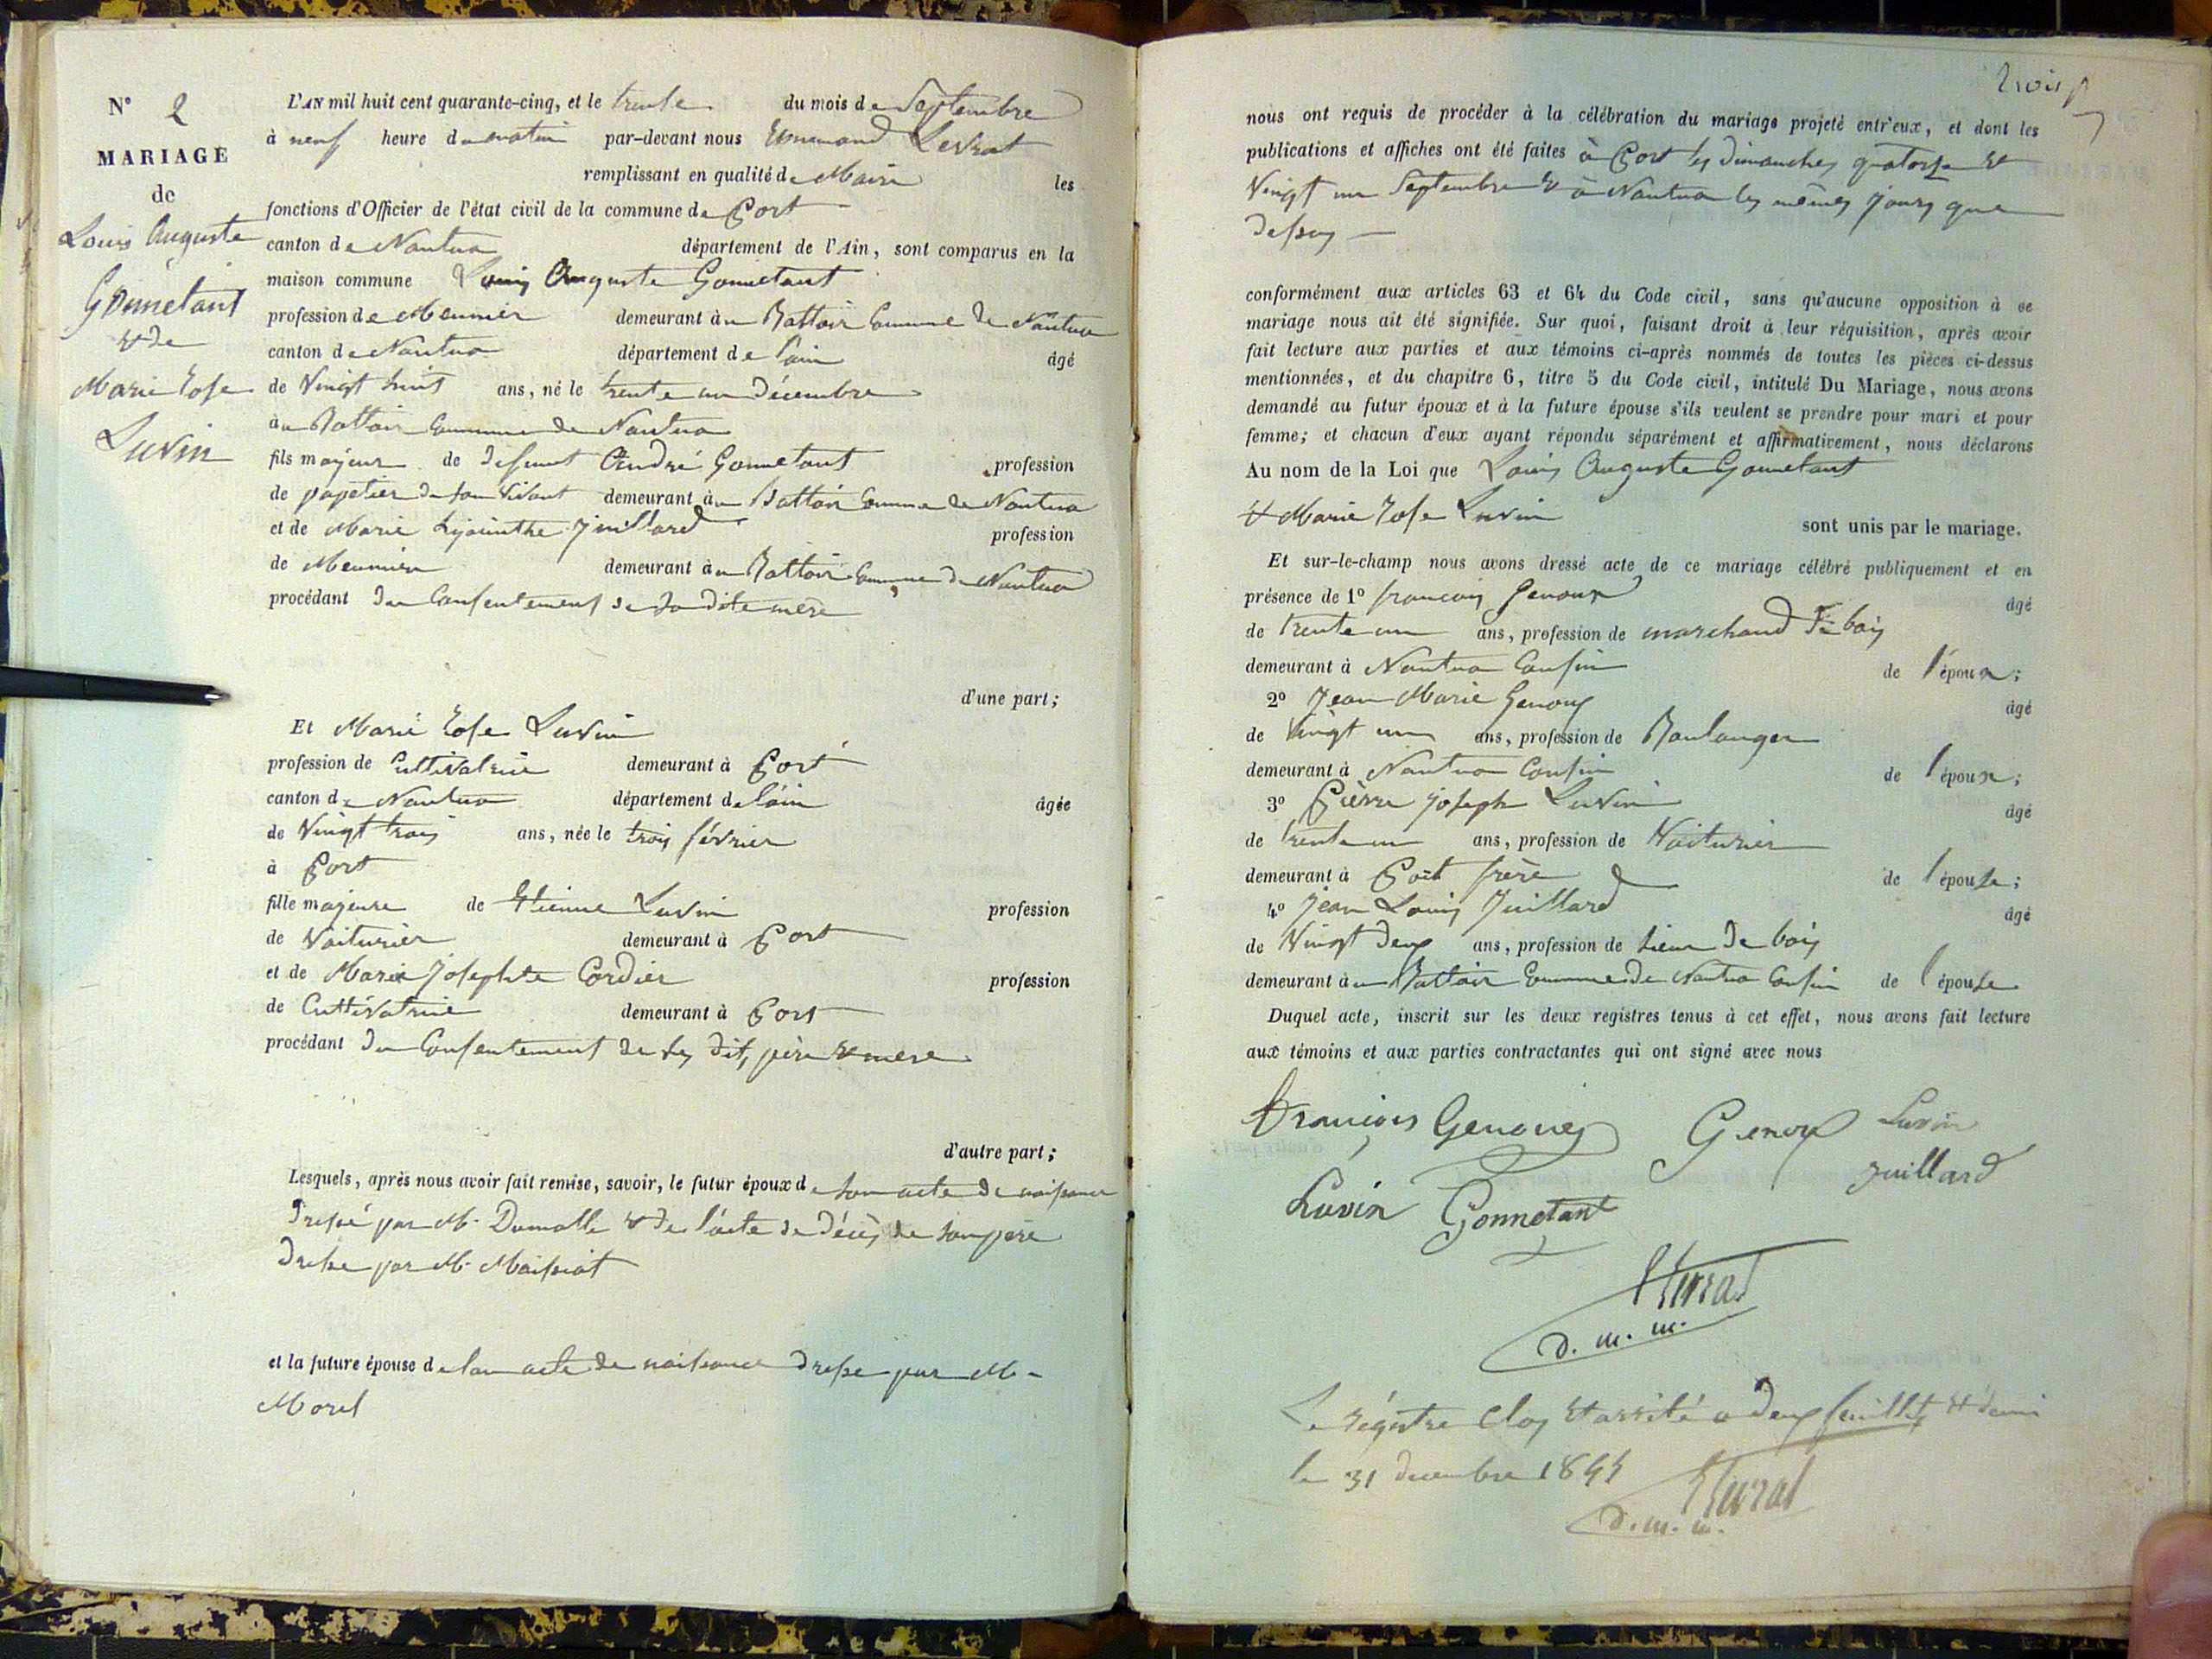 N° 2
MARIAGE
de
Louis Auguste
Gonnetant
& de
Marie Rose
Luvin
L'AN mil huit cent quarante-cinq, et le trente du mois de Septembre
à neuf heure du matin par-devant nous Levrat
remplissant en qualité de Maire les
fonctions d'Officier de l'état civil de la commune de Port
canton de Nantua département de l'Ain, sont comparus en la
maison commune Louis Auguste Gonnetant
profession de Meunier demeurant au Battoir Commune de Nantua
canton de Nantua département de l'ain âgé
de Vingt huit ans, né le trente un Décembre
au Battoir Commune de Nantua
fils majeur de defunt André Gonnetant profession
de papetier de son vivant demeurant au Battoir Commune de Nantua
et de Marie hyacinthe Juillard profession
de Meunière demeurant au Battoir Commune de Nantua
procédant du Consentement de sa dite mère
d'une part;
Et Marie Rose Luvin
profession de Cultivatrice demeurant à Port
canton de Nantua département de l'ain âgée
de Vingt trois ans, née le trois février
à Port
fille majeure de Etienne Luvin profession
de Voiturier demeurant à Port
et de Marie Josephte Cordier profession
de Cultivatrice demeurant à Port
procédant du Consentement de ses dits père & mere
d'autre part;
Lesquels, après nous avoir fait remise, savoir, le futur époux de son acte de naissance
Dressé par M. & de l'acte de décès de son père
Dressé par M. Maissiat
et la future épouse de son acte de naissance Dressé par M.
Morel
trois
nous ont requis de procéder à la célébration du mariage projeté entr'eux, et dont les
publications et affiches ont été faites à Port les Dimanches quatorze &
Vingt un Septembre & à Nantua les mêmes jours que
Dessus
conformément aux articles 63 et 64 du Code civil, sans qu'aucune opposition à ce
mariage nous ait été signifiée. Sur quoi, faisant droit à leur réquisition, après avoir
fait lecture aux parties et aux témoins ci-après nommés de toutes les pièces ci-dessus
mentionnées, et du chapitre 6, titre 5 du Code civil, intitulé Du Mariage, nous avons
demandé au futur époux et à la future épouse s'ils veulent se prendre pour mari et pour
femme; et chacun d'eux ayant répondu séparément et affirmativement, nous déclarons
Au nom de la Loi que Louis Auguste Gonnetant
& Marie Rose Luvin sont unis par le mariage.
Et sur-le-champ nous avons dressé acte de ce mariage célébré publiquement et en
présence de 1° françois Genoux âgé
de trente un ans, profession de marchand de bois
demeurant à Nantua Cousin de l'époux;
2° Jean Marie Genoux âgé
de Vingt un ans, profession de Boulanger
demeurant à Nantua Cousin de l'époux;
3° Pièrre joseph Luvin âgé
de trente un ans, profession de Voiturier
demeurant à Port frère de l'épouse;
4° Jean Louis Juillard âgé
de Vingt Deux ans, profession de Sieur de bois
demeurant au Battoir Commune de Nantua Cousin de l'épouse
Duquel acte, inscrit sur les deux registres tenus à cet effet, nous avons fait lecture
aux témoins et aux parties contractantes qui ont signé avec nous
françois Genoux Genoux Luvin
juillard
Luvin Gonnetant
d. m. m.
Le régistre Clos & arrêté a Deux feuillets & demi
le 31 decembre 1845
d. m. m.